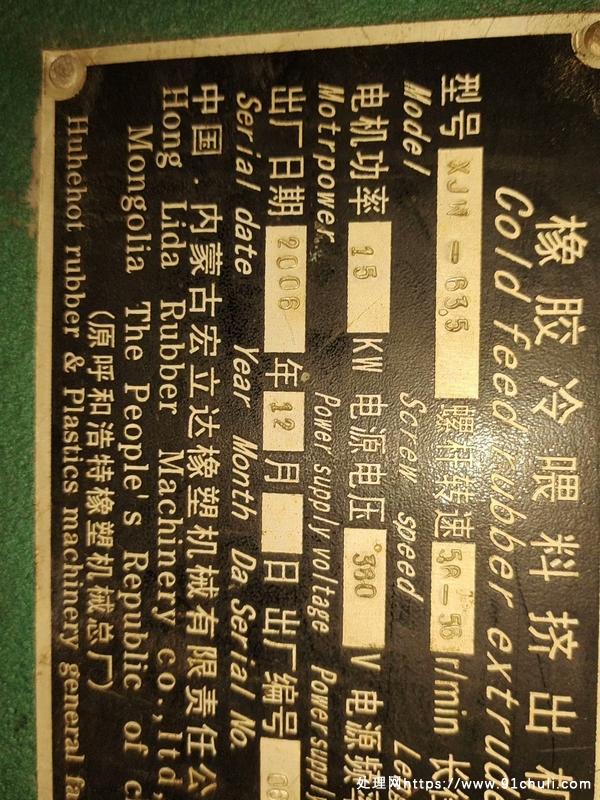 橡胶冷喂料挤出
Cold feed rubber extrud
型号 XJW-63.5 螺杆转速 5.6-56 r/min 长
Model Screw speed Le
电机功率 15 KW 电源电压 380 V 电源频率
Motrpower Power supply voltage Power supply
出厂日期 2006 年 12 月 日 出厂编号 06
Serial date Year Month Da Serial No.
中国.内蒙古宏立达橡塑机械有限责任公
Hong Lida Rubber Machinery co.,ltd,
Mongolia The People's Republic of c
(原呼和浩特橡塑机械总厂)
Huhehot rubber & Plastics machinery general fa
处理网https://www.91chuli.com